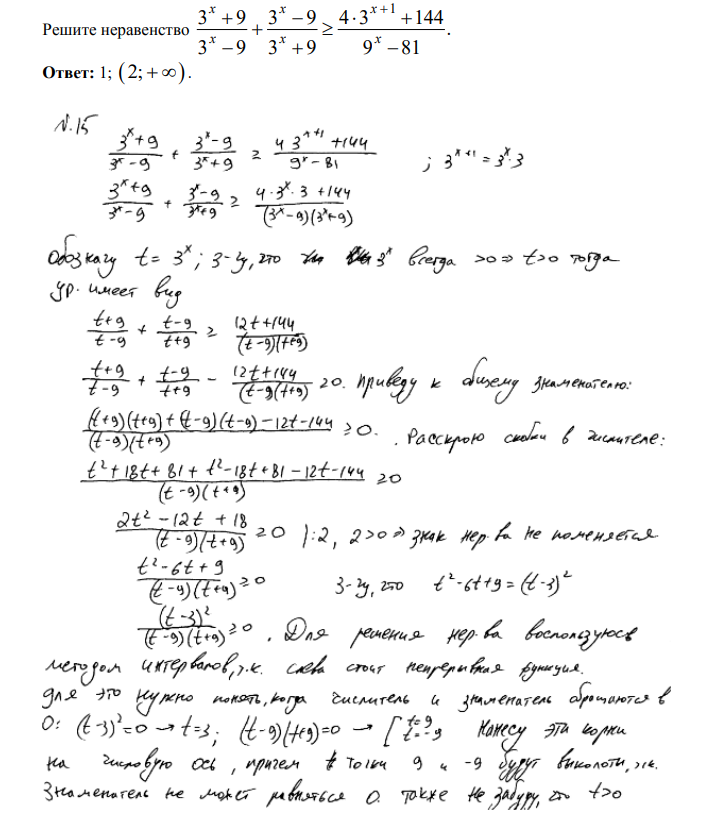 Решите неравенство (3^x + 9)/(3^x − 9) + (3^x − 9)/(3^x + 9) ≥ (4·3^(x+1) + 144)/(9^x − 81).
Ответ: 1; (2; +∞).
N.15
(3^x+9)/(3^x−9) + (3^x−9)/(3^x+9) ≥ (4 3^(x+1) +144)/(9^x−81) ; 3^(x+1) = 3^x·3
(3^x+9)/(3^x−9) + (3^x−9)/(3^x+9) ≥ (4·3^x·3 +144)/((3^x−9)(3^x+9))
Обозначу t = 3^x; З-чу, что 3^x всегда >0 ⇒ t>0 тогда
ур. имеет вид
(t+9)/(t−9) + (t−9)/(t+9) ≥ (12t+144)/((t−9)(t+9))
(t+9)/(t−9) + (t−9)/(t+9) − (12t+144)/((t−9)(t+9)) ≥0. Приведу к общему знаменателю:
((t+9)(t+9)+(t−9)(t−9)−12t−144)/((t−9)(t+9)) ≥0. . Раскрою скобки в числителе:
(t²+18t+81+t²−18t+81−12t−144)/((t−9)(t+9)) ≥0
(2t²−12t+18)/((t−9)(t+9)) ≥0 |:2, 2>0 ⇒ знак нер-ва не поменяется
(t²−6t+9)/((t−9)(t+9)) ≥0 З-чу, что t²−6t+9=(t−3)²
(t−3)²/((t−9)(t+9)) ≥0. Для решения нер-ва воспользуюсь
методом интервалов, т.к. слева стоит непрерывная функция.
Для это нужно понять, когда числитель и знаменатель обращаются в
0: (t−3)²=0 → t=3; (t−9)(t+9)=0 → [t=9 t=−9 Нанесу эти корни
на числовую ось, причем точки 9 и −9 будут выколоты, т.к.
Знаменатель не может равняться 0. также не забуду, что t>0